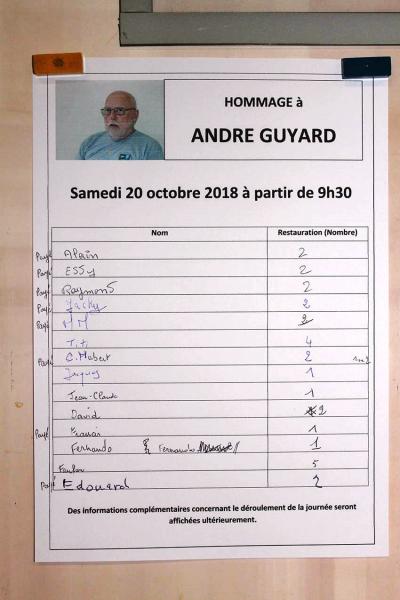 HOMMAGE à
ANDRE GUYARD
Samedi 20 octobre 2018 à partir de 9h30
Nom Restauration (Nombre)
Payé Alain 2
Payé ESSy 2
Payé Raymond 2
Payé Jacky 2
Payé MM 2
Titi 4
Payé C. Mabert 2
Jacques 1
Jean-Claude 1
David 2
Payé 1
Fernando Fernando 1
5
Payé Edouard 2
Des informations complémentaires concernant le déroulement de la journée seront
affichées ultérieurement.